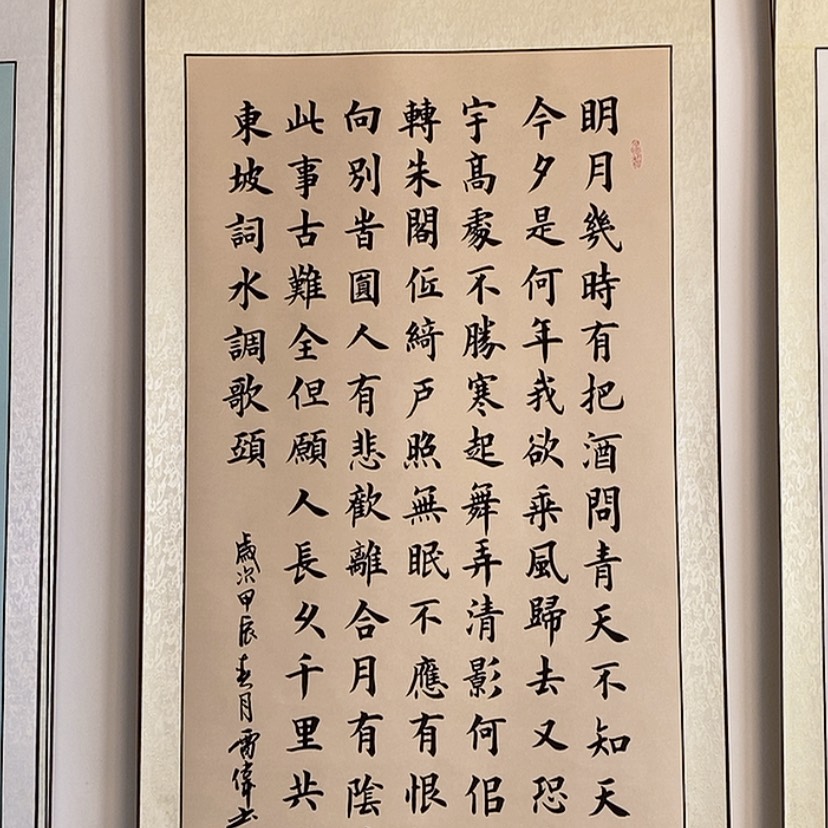 眀月幾時有把酒問青天不知天
今夕是何年我欲乘風歸去又恐
宇髙處不勝寒起舞弄清影何佀
轉朱閣低綺戶照無眠不應有恨
向別旹圓人有悲歡離合月有陰
此事古難全但願人長久千里共
東坡詞水調歌頭
歲次甲辰春月雷偉书